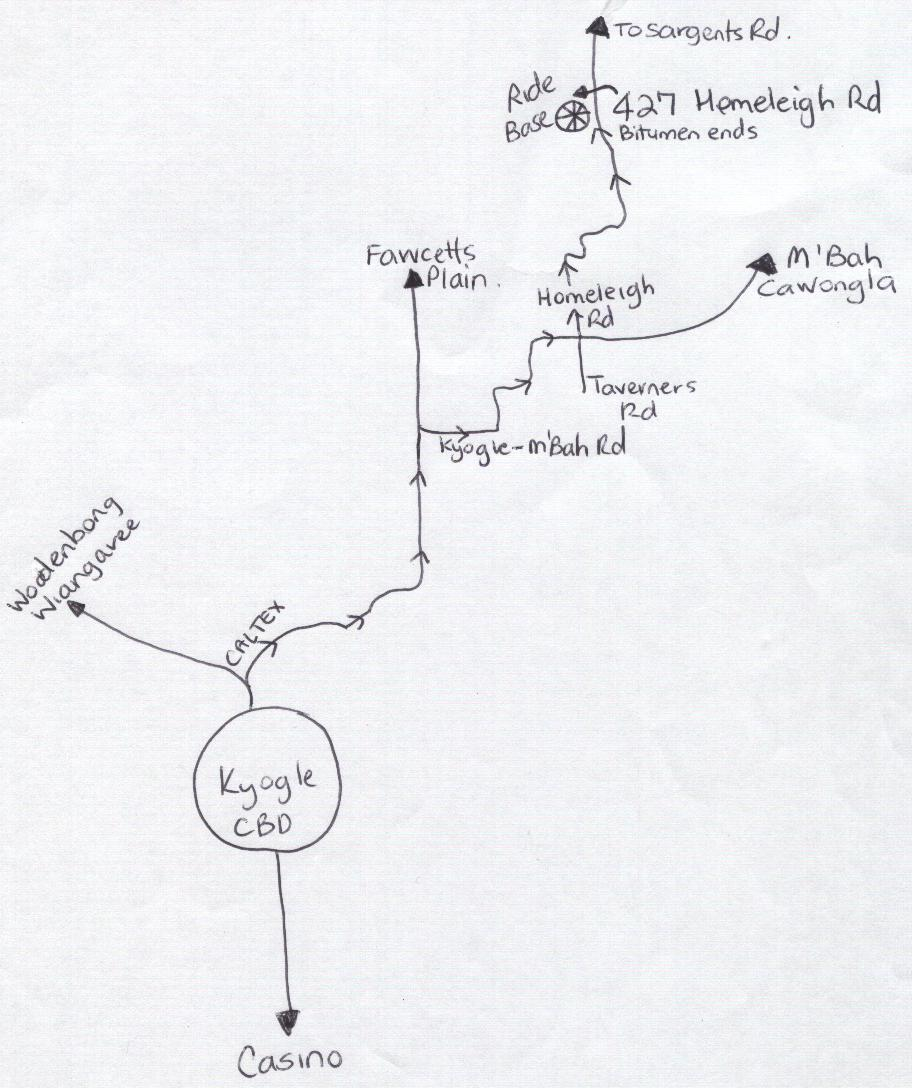 To Sargents Rd.
Ride
Base
427 Homeleigh Rd
Bitumen ends
Fawcetts
Plain.
M'Bah
Cawongla
Homeleigh
Rd
Taverners
Rd
Kyogle-M'Bah Rd
Woodenbong
Wiangaree
CALTEX
Kyogle
CBD
Casino